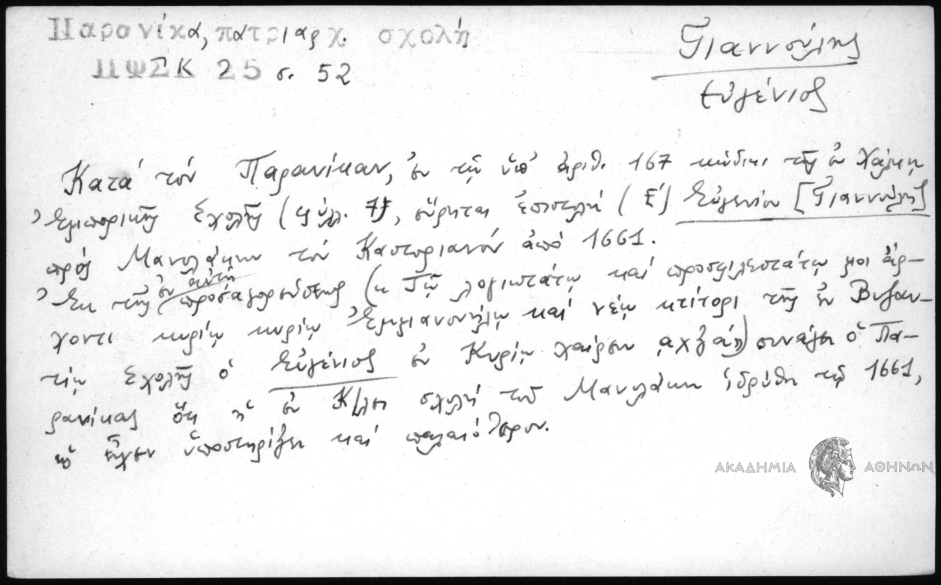 Παρανίκα, πατριαρχ. σχολή
ΠΨΣΚ 25 σ. 52
Γιαννούλης
Εὐγένιος
Κατά τόν Παρανίκαν, ἐν τῷ ὑπ' ἀριθ. 167 κώδικι τῆς ἐν Χάλκῃ
Ἐμπορικῆς Σχολῆς (φύλλ. 7), εὕρηται ἐπιστολή Εὐγενίου [Γιαννούλη]
πρός Μανολάκην τόν Καστοριανόν ἀπό 1661.
Ἐκ τῆς ἐν αὐτῇ προσαγορεύσεως (« Τῷ λογιωτάτῳ καί προσφιλεστάτῳ μοι ἄρ-
χοντι κυρίῳ κυρίῳ Ἐμμανουήλῳ καί νέῳ κτίτορι τῆς ἐν Βυζαν-
τίῳ Σχολῆς ὁ Εὐγένιος ἐν Κυρίῳ χαίρειν ͵αχξά») συνάγει ὁ Πα-
ρανίκας ὅτι ἡ ἐν Κ/λει σχολή τοῦ Μανολάκη ἱδρύθη τῷ 1661,
ὅ εἶχεν ὑποστηρίξει καί παλαιότερον.
ΑΚΑΔΗΜΙΑ ΑΘΗΝΩΝ